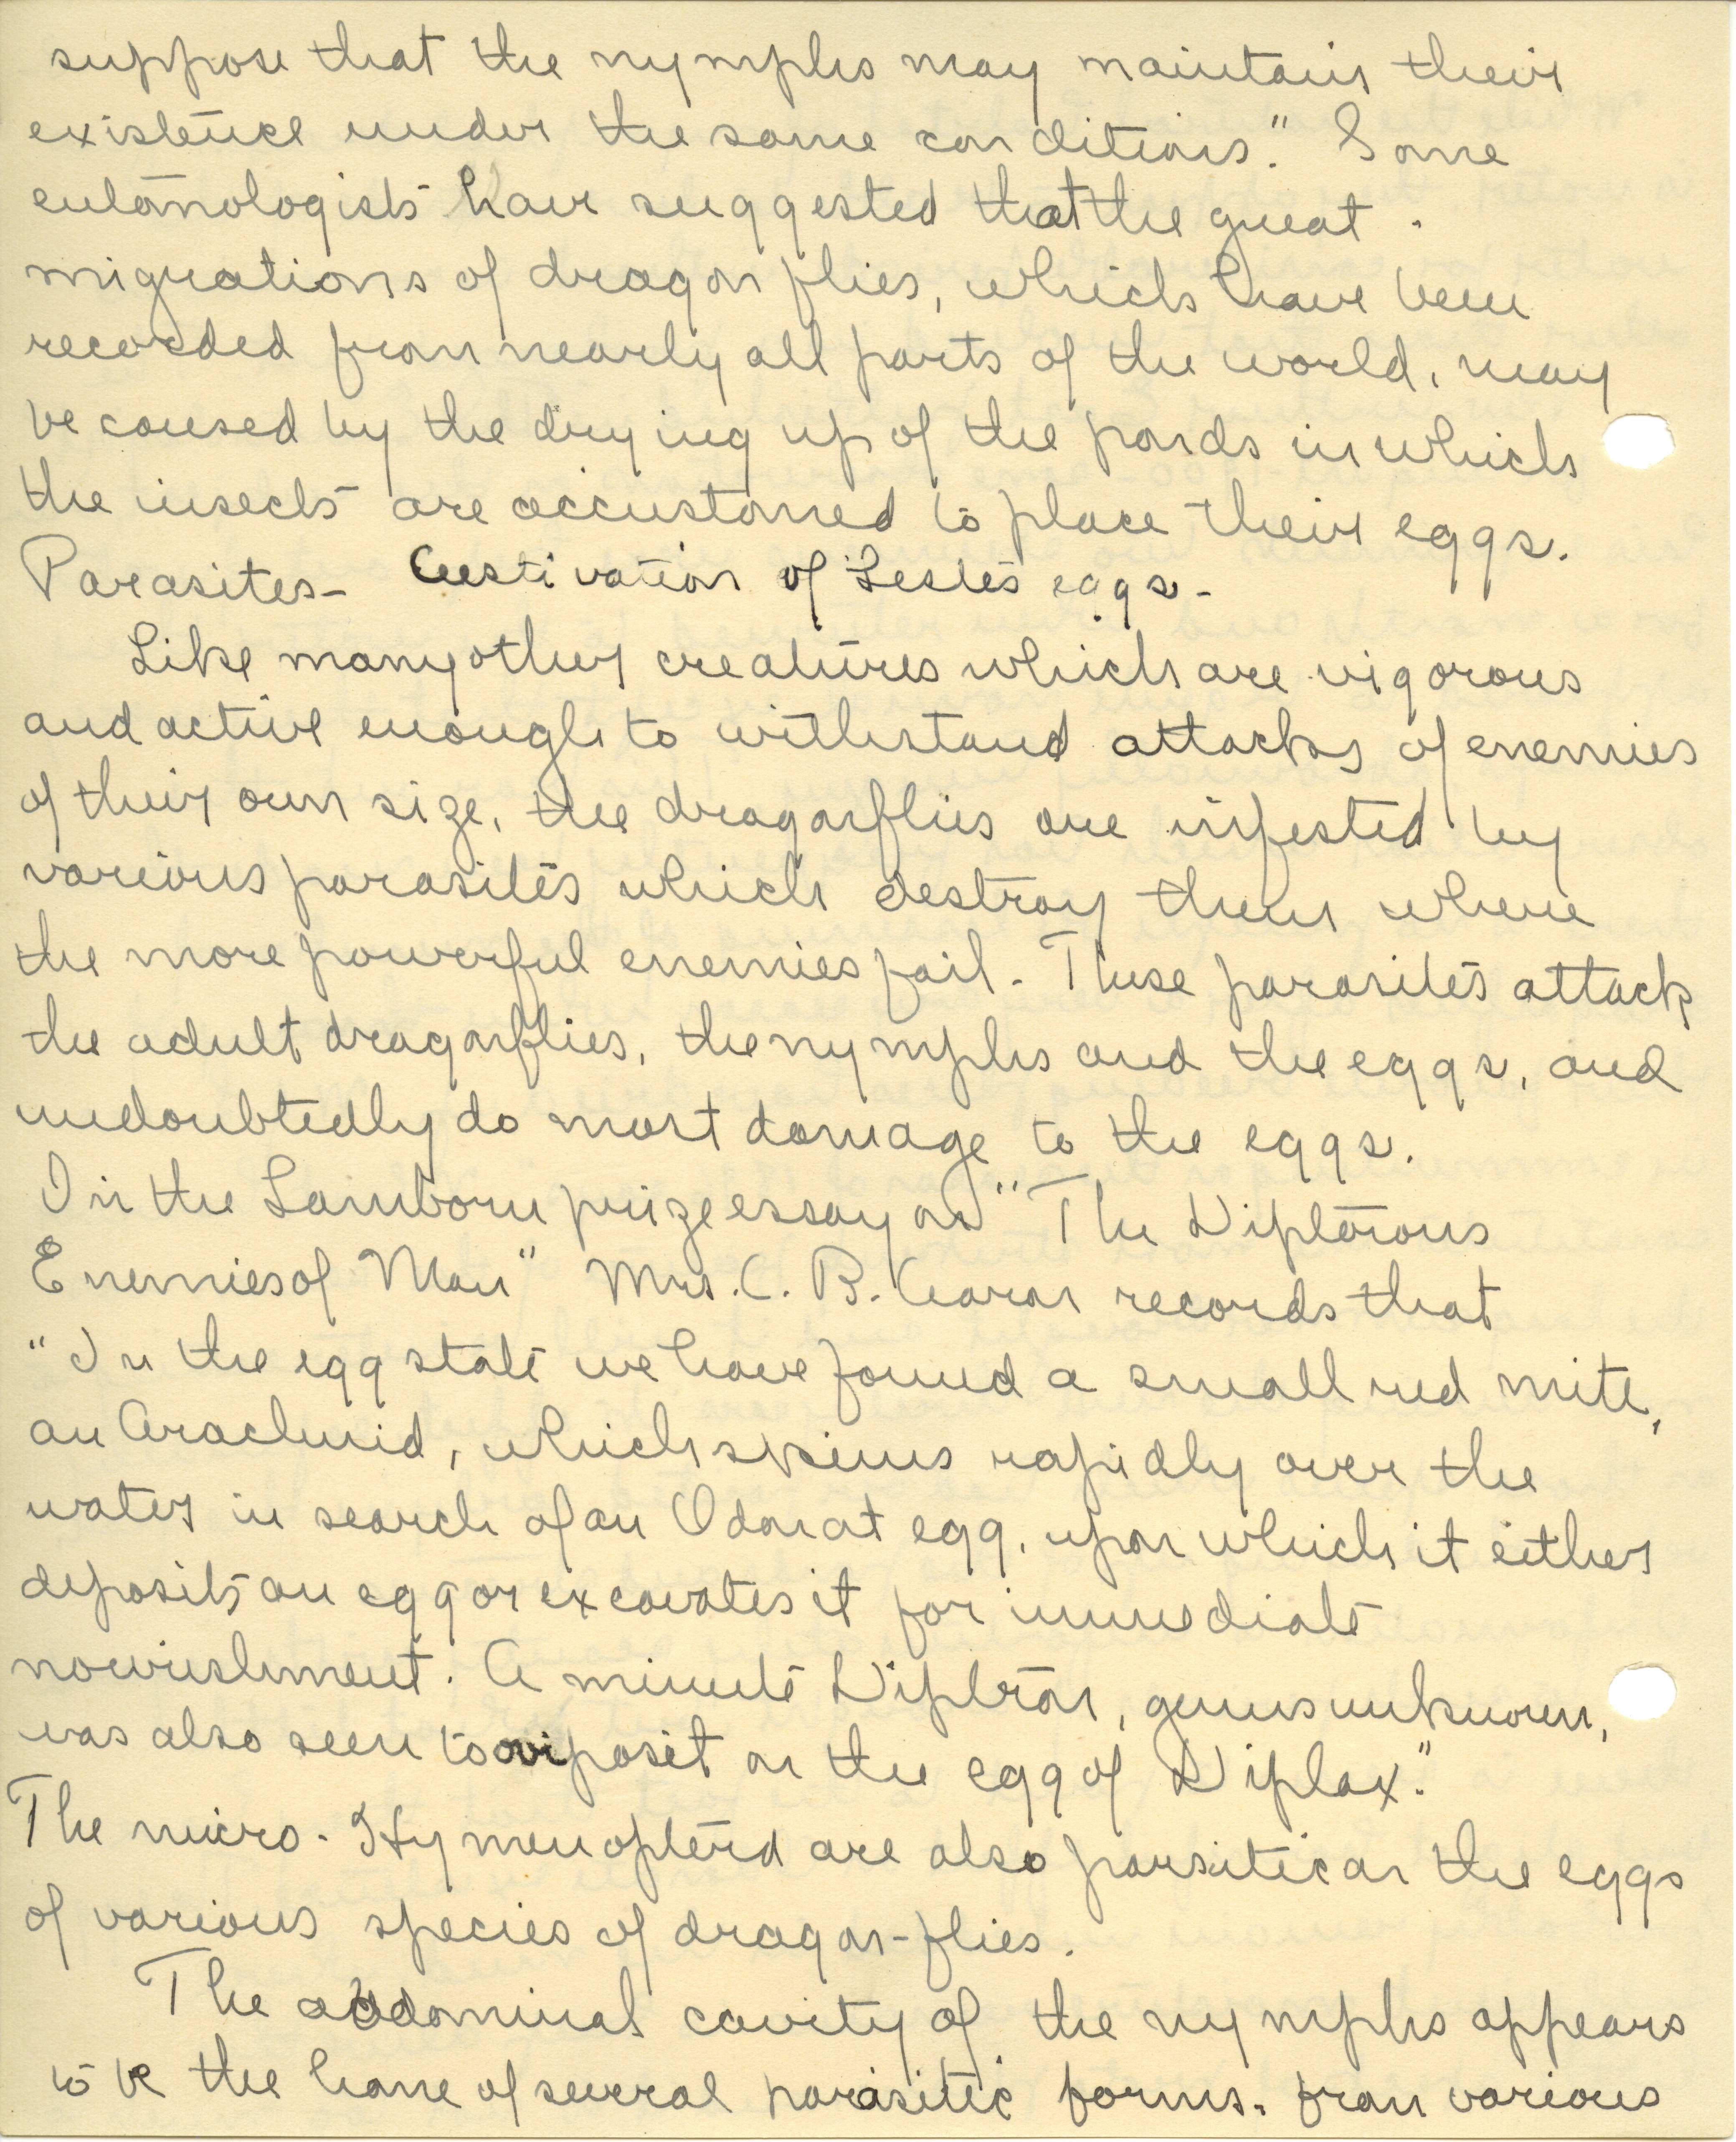 suppose that the nymphs may maintain their
existence under the same conditions." Some
entomologists have suggested that the great
migrations of dragon flies, which have been
recorded from nearly all parts of the world, may
be caused by the drying up of the ponds in which
the insects are accustomed to place their eggs.
Parasites - Aestivation of Lestes eggs -
Like many other creatures which are vigorous
and active enough to withstand attacks of enemies
of their own size, the dragonflies are infested by
various parasites which destroy them where
the more powerful enemies fail. These parasites attack
the adult dragonflies, the nymphs and the eggs, and
undoubtedly do most damage to the eggs.
In the Lamborn prize essay on "The Dipterous
Enemies of Man" Mrs. C. B. Aaron records that
"In the egg state we have found a small red mite,
an Arachnid, which skims rapidly over the
water in search of an Odonat egg, upon which it either
deposits an egg or excavates it for immediate
nourishment. A minute Dipteron, genus unknown,
was also seen to oviposit on the egg of Diplax."
The micro-Hymenopterd are also parsitic on the eggs
of various species of dragon-flies.
The abdominal cavity of the nymphs appears
to be the home of several parasitic forms. From various